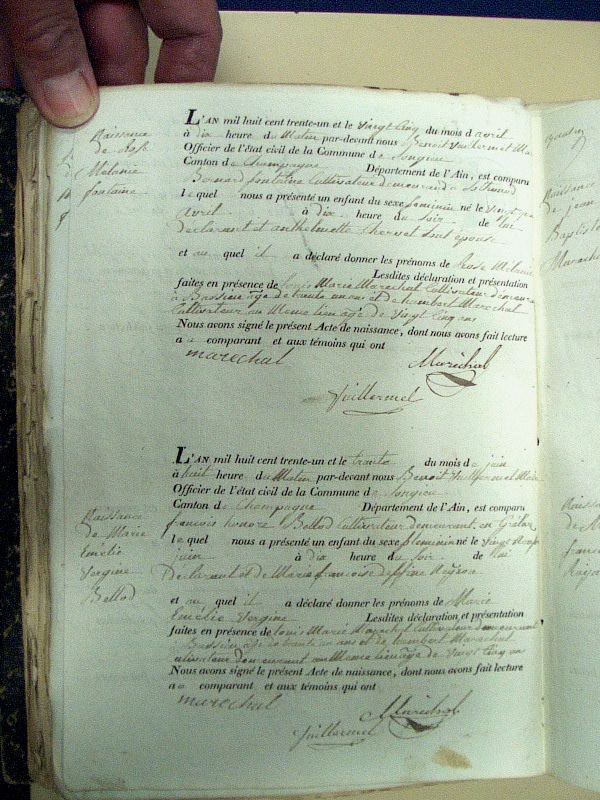 Naissance
de Rose
Melanie
fontaine
L'AN mil huit cent trente-un et le vingt cinq du mois d avril
à dix heure du Matin par-devant nous Benoit Vuillermet Mai
Officier de l'état civil de la Commune de Songieu
Canton de Champagne Département de l'Ain, est comparu
Bernard fontaine Cultivateur demeurant a
le quel nous a présenté un enfant du sexe feminin né le vingt
avril à dix heure du soir de lui
declarant et anthelmette hervet sont épouse
et au quel il a déclaré donner les prénoms de Rose Melanie
Lesdites déclaration et présentation
faites en présence de Louis Marie Marechal Cultivateur demeurant
à Bassieu âgé de trente un an et de humbert Marechal
Cultivateur au Meme lieu âgé de vingt Cinq ans
Nous avons signé le présent Acte de naissance, dont nous avons fait lecture
a u comparant et aux témoins qui ont
marechal Maréchal
Vuillermet
Naissance
de Marie
Emélie
Vergine
Bellod
L'AN mil huit cent trente-un et le trente du mois de juin
à huit heure du Matin par-devant nous Benoit Vuillermet Maire
Officier de l'état civil de la Commune de Songieu
Canton de Champagne Département de l'Ain, est comparu
françois honoré Bellod Cultivateur demeurant en
le quel nous a présenté un enfant du sexe feleminin né le vingt neuf
juin à dix heure du soir de lui
Declarant et de Marie françoise Reyson
et au quel il a déclaré donner les prénoms de Marie
Emélie Vergine Lesdites déclaration et présentation
faites en présence de Louis Marie Marechal Cultivateur demeurant
Bassieu agé de trente un ans et de humbert Marechal
cultivateur demeurant au Meme lieu âgé de vingt Cinq an
Nous avons signé le présent Acte de naissance, dont nous avons fait lecture
a u comparant et aux témoins qui ont
marechal Maréchal
Vuillermet
Naissance
de jean
Baptiste
Marechal